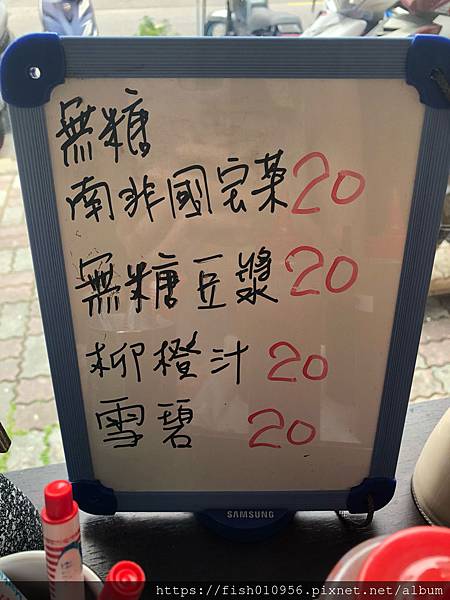 無糖
南非國宝茶20
無糖豆漿20
柳橙汁20
雪碧 20
SAMSUNG
https://fish010956.pixnet.net/album